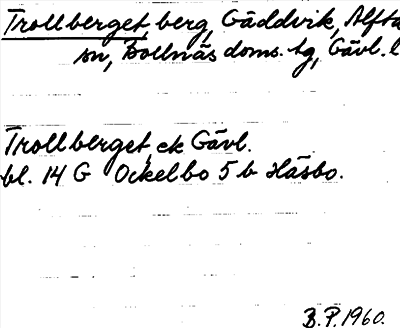 Trollberget, berg, Gäddvik, Alfta
sn, Bollnäs doms. tg, Gävl. l
Trollberget, ek Gävl.
bl. 14 G Ockelbo 5 b Häsbo.
B.P. 1960.